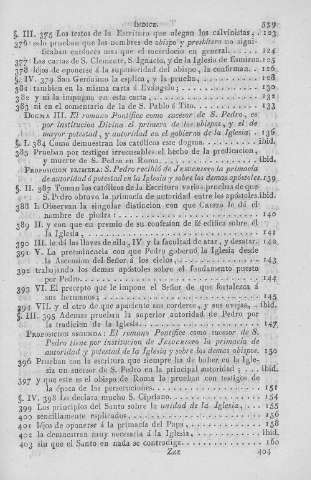 ÍNDICE. 539
§. III. 375 Los textos de la Escritura que alegan los calvinistas, . 123
376 solo prueban que los nombres de obispo y presbítero no signi-
ficaban entónces mas que el sacerdocio en general. . . . . . . . 124
377 Las cartas de S. Clemente, S. Ignacio, y de la Iglesia de Esmirna. 125
378 léjos de oponerse á la superioridad del obispo, la confirman. . . 126
§. IV. 379 San Gerónimo la explica, y la prueba. . . . . . . . . ibid.
381 tambien en la misma carta á Evángelo; . . . . . . . . 130
382 y ni la impugna en esta carta . . . . . . . . 132
383 ni en el comentario de la de S. Pablo á Tito. . . . . . . . 133
DOGMA III. El romano Pontífice como sucesor de S. Pedro, es
por institucion Divina el primero de los obispos, y el de
mayor potestad, y autoridad en el gobierno de la Iglesia; . . 136
§. I. 384 Como demuestran los católicos este dogma. . . . . . . . ibid.
385 Prueban por testigos irrecusables el hecho de la predicacion,
y muerte de S. Pedro en Roma. . . . . . . . ibid.
PROPOSICION PRIMERA: S. Pedro recibió de JESUCRISTO la primacía
de autoridad ó potestad en la Iglesia y sobre los demas apóstoles. 139
§. II. 387 Toman los católicos de la Escritura varias pruebas de que
S. Pedro obtuvo la primacía de autoridad entre los apóstoles. ibid.
388 I. Observan la singular distincion con que Cristo le dá el
nombre de piedra: . . . . . . . . 140
389 II. y con que en premio de su confesion de fé edifica sobre él
la Iglesia, . . . . . . . . 141
390 III. le dá las llaves de ella, IV. y la facultad de atar, y desatar. 140
391 V. La preeminencia con que Pedro gobernó la Iglesia desde
la Ascension del Señor á los cielos, . . . . . . . . 143
392 trabajando los demas apóstoles sobre el fundamento puesto
por Pedro. . . . . . . . 144
393 VI. El precepto que le impone el Señor de que fortalezca á
sus hermanos; . . . . . . . . 145
394 VII. y el otro de que apaciente sus corderos, y sus ovejas, . . ibid.
§. III. 395 Ademas prueban la superior autoridad de Pedro por
la tradicion de la Iglesia. . . . . . . . 147
PROPOSICION SEGUNDA: El romano Pontífice como sucesor de S.
Pedro tiene por institucion de JESUCRISTO la primacía de
autoridad y potestad de la Iglesia y sobre los demas obispos. 150
396 Prueban con la escritura que siempre ha de haber en la Igle-
sia un sucesor de S. Pedro en la principal autoridad ; . . . ibid.
397 y que este es el obispo de Roma lo prueban con testigos de
la época de las persecuciones. . . . . . . . 151
§. IV. 398 Lo declara mucho S. Cipriano. . . . . . . . 154
399 Los principios del Santo sobre la unidad de la Iglesia, . . . . 155
400 sencillamente explicados, . . . . . . . . 156
401 léjos de oponerse á la primacía del Papa, . . . . . . . . 158
402 la demuestran muy necesaria á la Iglesia, . . . . . . . . ibid.
403 sin que el Santo en nada se contradiga. . . . . . . . 160
Zzz 404